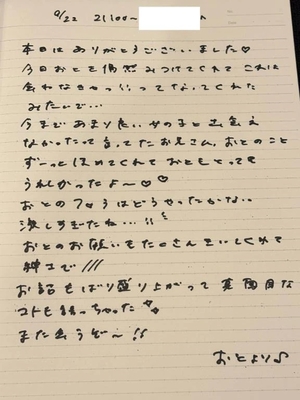 9/22 21:00〜
本日はありがとうございました♡
今日おとを偶然みつけてくれてこれは
会わなきゃ!!ってなってくれた
みたいで…
今まであまり良い女の子と出会え
なかったって言ってたお兄さん。おとのこと
ずーっとほめてくれておともとっても
うれしかったよ〜♡♡
おとのフ
激しすぎたね…!!
おとのお願いもたくさんきいてくれて
紳士で///
お話もばり盛り上がって真面目な
コトも語っちゃった
また会うぞ〜!!
おとより♪